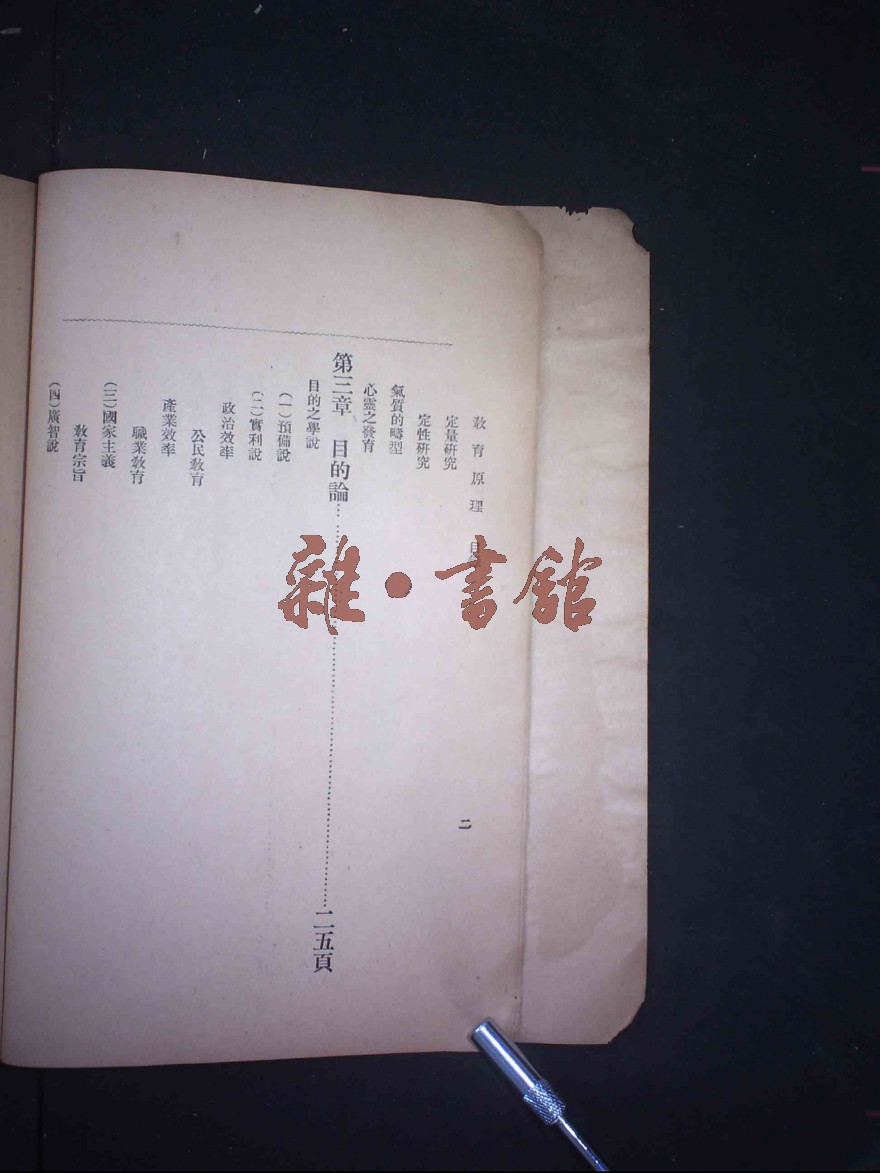 教育原理 目
二
定量研究
定性研究
氣質的疇型
心靈之發育
第三章 目的論……二五頁
目的之學說
(一)預備說
(二)實利說
政治效率
公民教育
產業效率
職業教育
(三)國家主義
教育宗旨
(四)廣智說
雜·書館